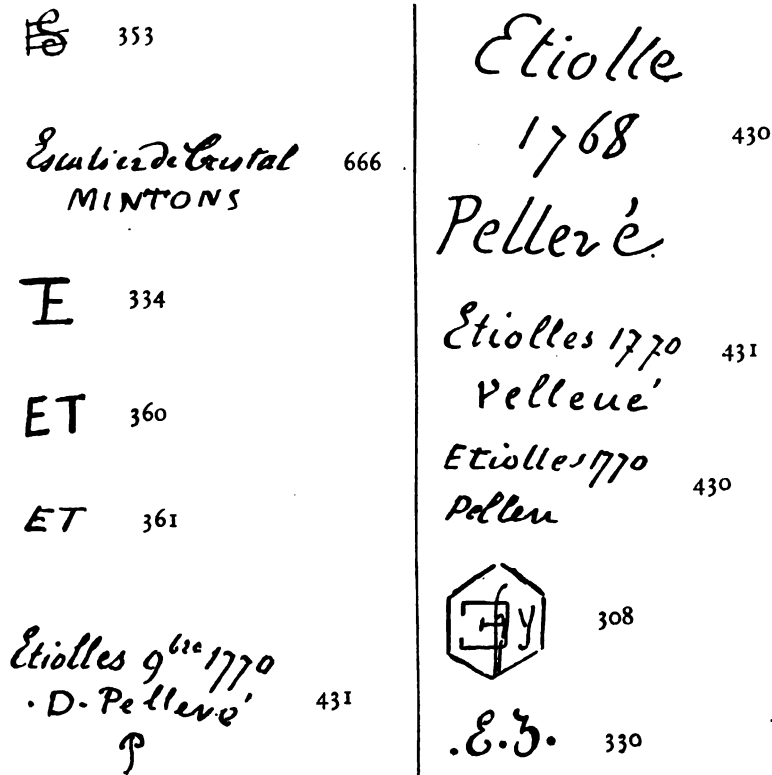 353
Escalier de Cristal 666
MINTONS
E 334
ET 360
ET 361
Etiolles 9bre 1770
. D. Pellevé 431
P
Etiolle
1768 430
Pellevé
Etiolles 1770 431
Pelleué
Etiolles 1770 430
Pelleu
308
.E.3. 330